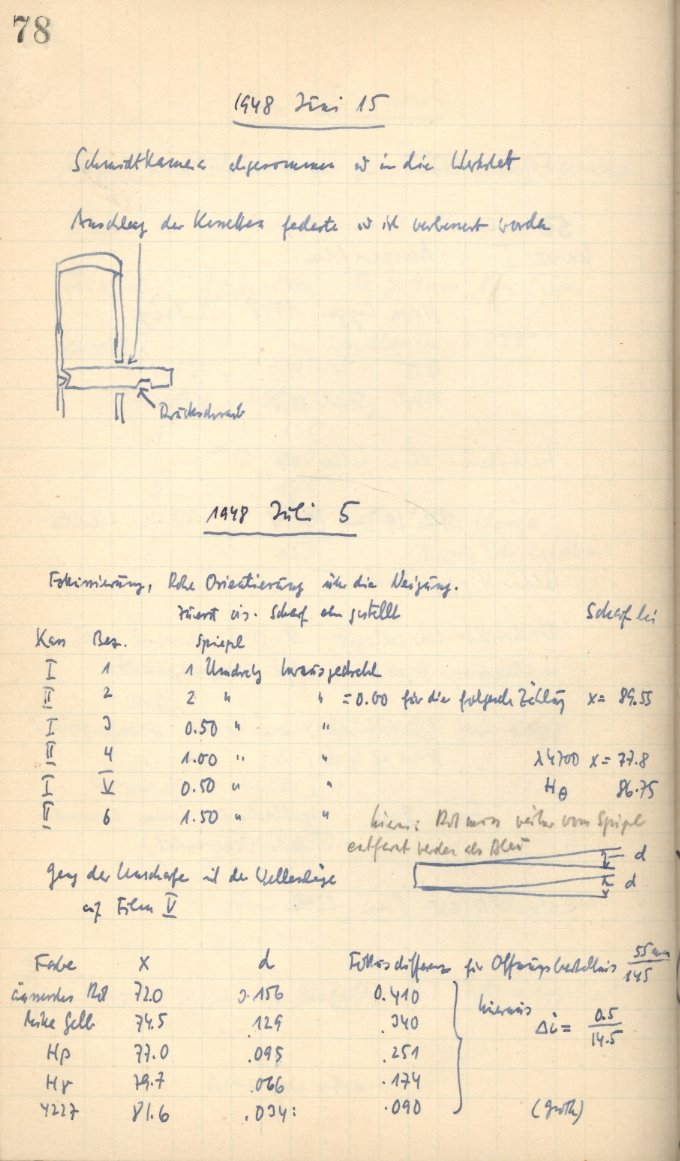 78
1948 Juni 15
Schmidtkamera abgenommen u in die Werkstatt
Anschlag der Kassetten federte u ist verbessert worden
Druckschraube
1948 Juli 5
Fokussierung, Rohe Orientierung über die Neigung.
zuerst vis. Scharf eingestellt
Scharf bei
Kass Bez. Spiegel
I 1 1 Umdreh herausgedreht
II 2 2 " " = 0.00 für die folgende Zählung x = 89.55
I 3 0.50 " "
II 4 1.00 " " λ4700 x = 77.8
I V 0.50 " " 86.75
II 6 1.50 " "
hieraus Rot muss weiter vom Spiegel
entfernt werden als Blau
d
d
Gang der Unschärfe mit der Wellenlänge
auf Film V
Farbe x d Fokusdifferenz für Öffnungsverhältnis 55mm/145
äusserstes Rot 72.0 0.156 0.410
Mitte Gelb 74.5 .129 .340
Hβ 77.0 .095 .251
Hγ 79.7 .066 .174
4227 81.6 .034 .090
hieraus
Δi = 0.5/14.5
(grob)